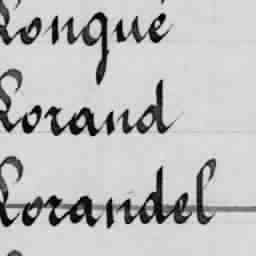 Longué
Lorand
Lorandel